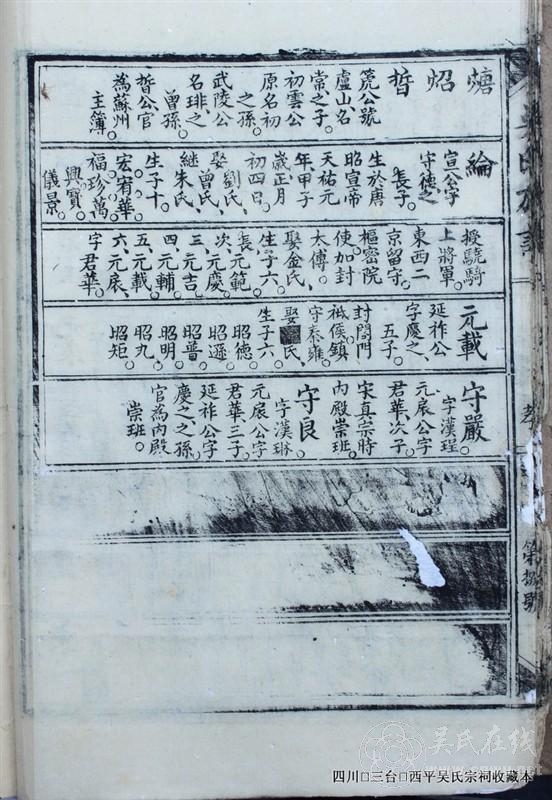 熵 炤 晢
箎公號
廬山名
常之子。
初雲公
原名初
之孫
武陵公
名琲之
曾孫。
晢公官
為蘇州
主簿。
綸
宣公字
守德之
長子。
生於唐
昭宣帝
天祐元
年、甲子
歲正月
初四日。
娶劉氏、
曾氏、
継朱氏、
生子十。
宏、宥、華、
福、珍、萬、
興、寳、
儀、景。
授驍騎
上將軍。
東西二
京留守。
樞密院
使加封
太傅。
娶金氏、
生子六。
長元範、
次、元慶、
三、元吉、
四、元輔、
五、元載、
六、元扆、
字君華。
元載
延祚公
字慶之、
五子。
封閤門
祗侯鎮
守泰雍。
娶 氏、
生子六、
昭德
昭遜
昭普
昭明
昭九
昭矩。
守嚴
字漢珵。
元扆公字
君華次子。
宋真宗時
内殿崇班。
守良
字漢琳
元扆公字
君華、三子。
延祚公字
慶之、之孫
官為内殿
崇班。
吳氏在线
四川□三台□西平吴氏宗祠收藏本